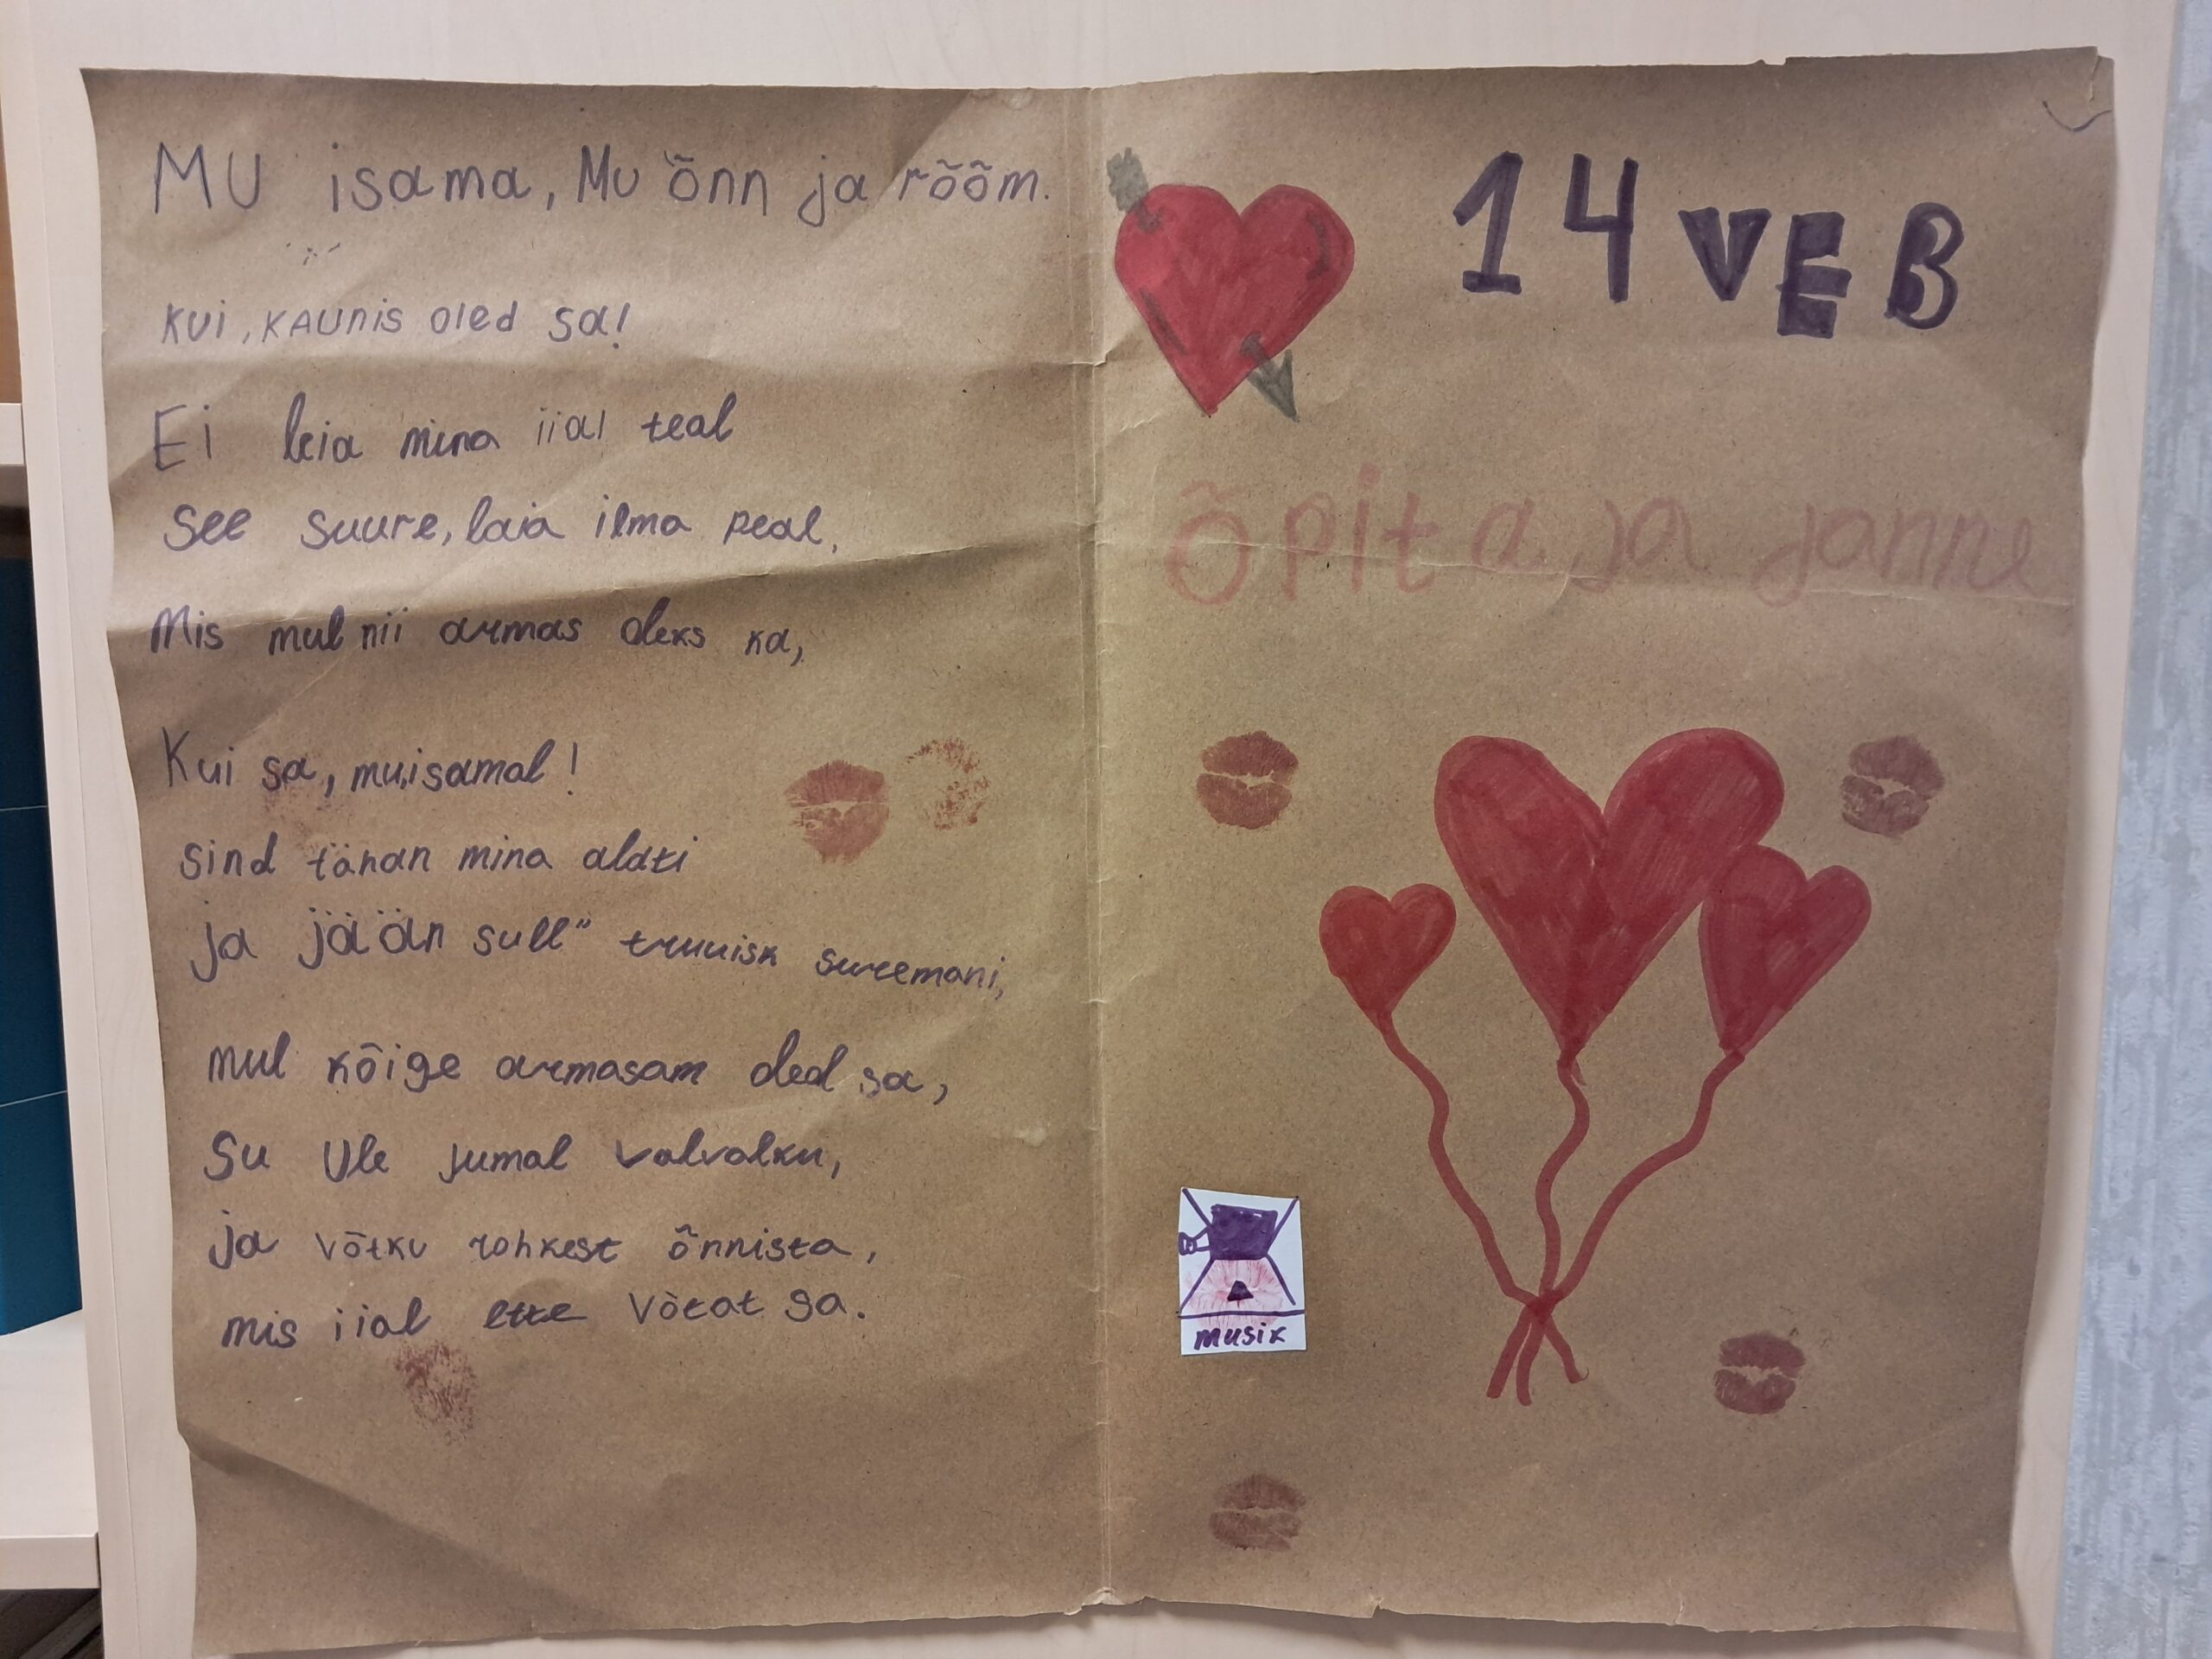 MU isama, Mu õnn ja rõõm.
kui, kAUnis oled sa!
Ei leia mina iial teal
See suure, laia ilma peal,
Mis mul nii armas oleks ka,
Kui sa, mu,isamal !
Sind tänan mina alati
ja jään sull" truuisk suremani,
mul kõige armasam oled sa,
Su Ule jumal valvaku,
ja võtku rohkest õnnista,
mis iial ette võtat sa.
14 VEB
Õpita ja janne
musik